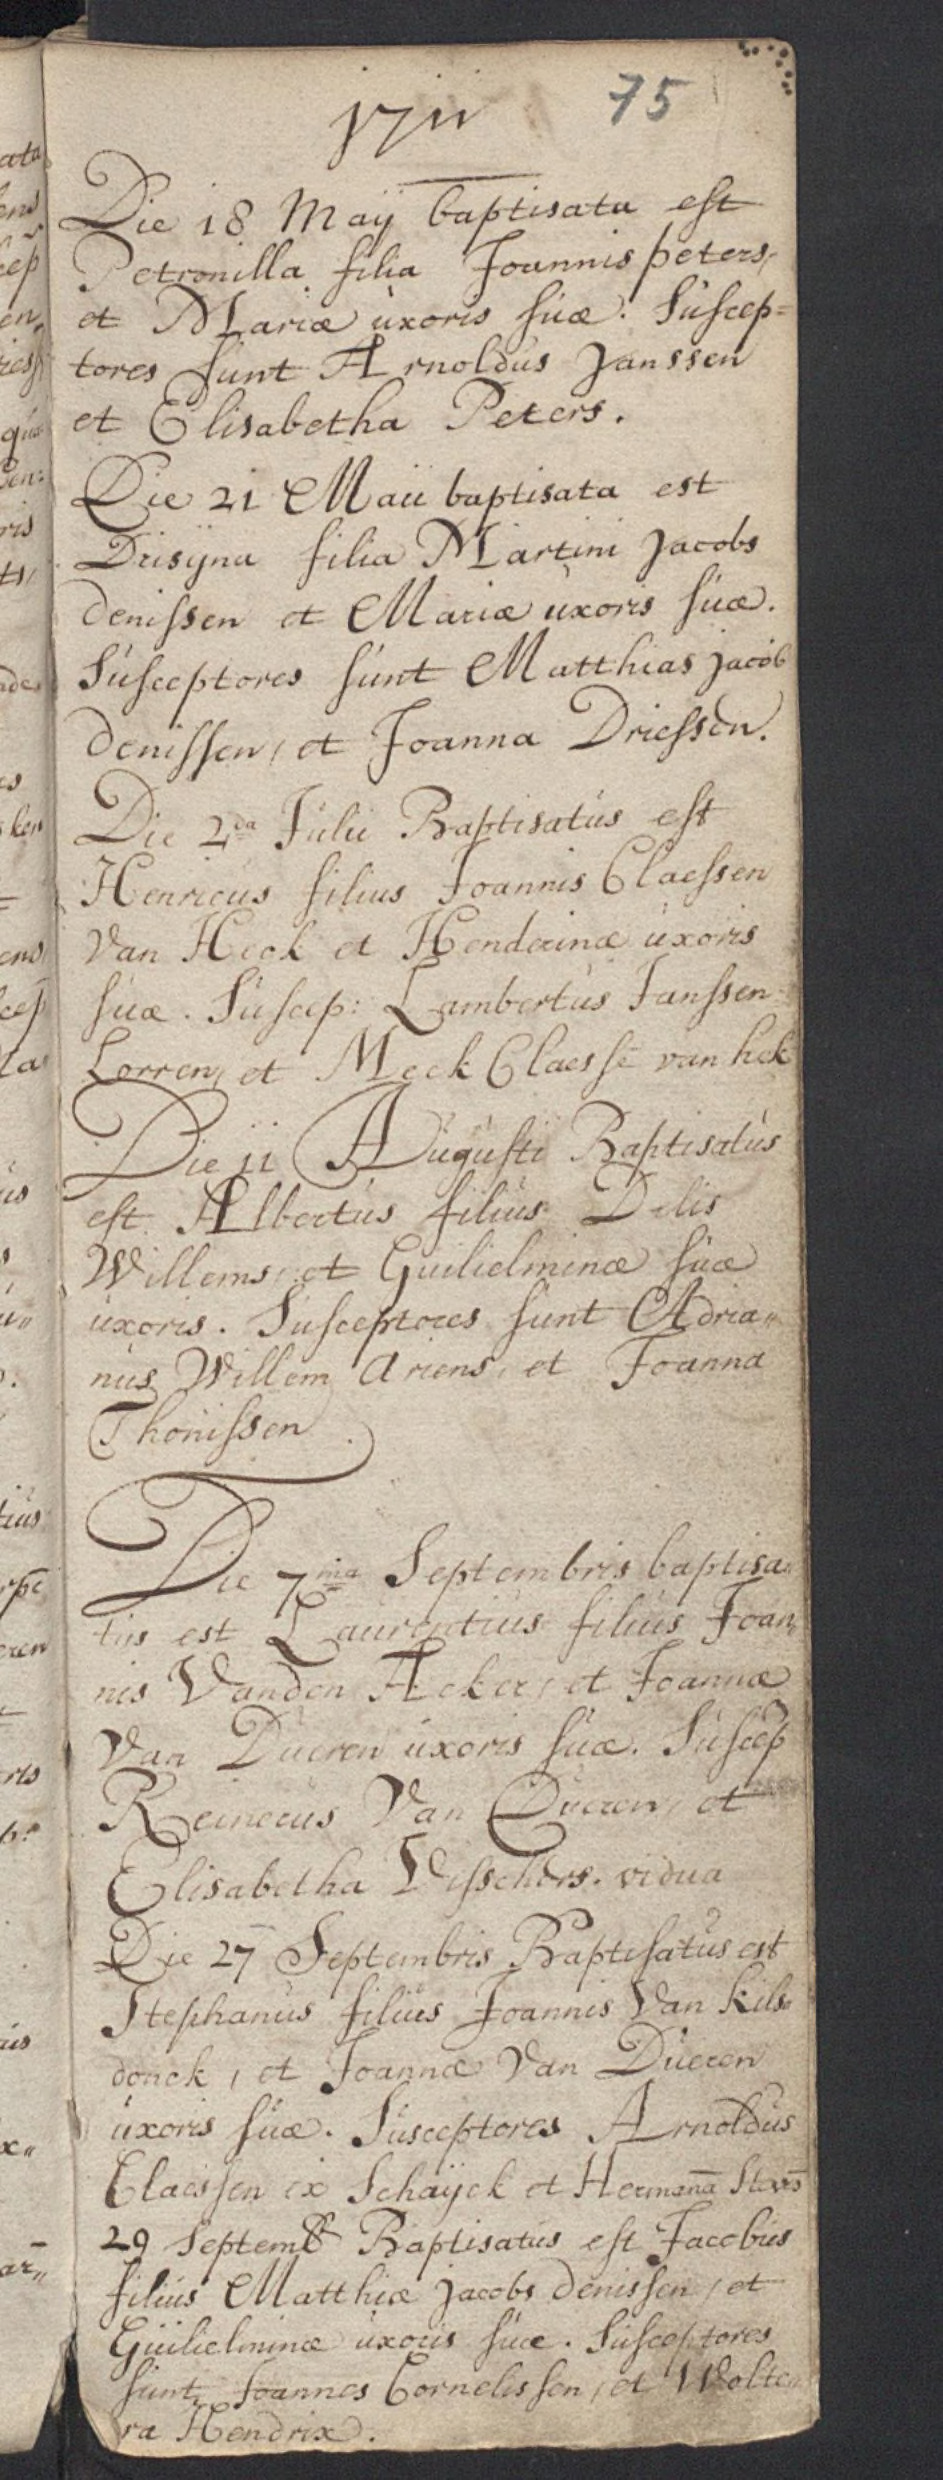 1711 75
Die 18 Maij baptisata est
Petronilla filia Joannis peters,
et Mariæ uxoris suæ. Suscep=
tores sunt Arnoldus Janssen
et Elisabetha Peters.
Die 21 Maii baptisata est
Drisyna filia Martini Jacobs
denissen et Mariæ uxoris suæ.
Susceptores sunt Matthias jacob
denissen, et Joanna Driessen.
Die 2da Julii Baptisatus est
Henricus filius Joannis Claessen
Van Heck et Henderinæ uxoris
suæ. Suscep: Lambertus Janssen
Lorren, et Meck Claessē van hek
Die 11 Augusti Baptisatus
est Albertus filius Delis
Willems, et Guilielminæ suæ
uxoris. Susceptores sunt Adria„
nus Willem Ariens, et Joanna
Thonissen
Die 7ma Septembris baptisa„
tus est Laurentius filius Joan„
nis Vanden Acker, et Joannæ
Van Dueren uxoris suæ. Suscep
Reinerus Van Dueren, et
Elisabetha Visschers. vidua
Die 27 Septembris Baptisatus est
Stephanus filius Joannis Van kils„
donck, et Joannæ Van Dueren
uxoris suæ. Susceptores Arnoldus
Claessen ex Schaijck et Hermanā
29 Septemb Baptisatus est Jacobus
filius Matthiæ jacobs denissen, et
Guilielminæ uxoris suæ. Susceptores
sunt Joannes Cornelissen, et Wolte„
ra Hendrix.